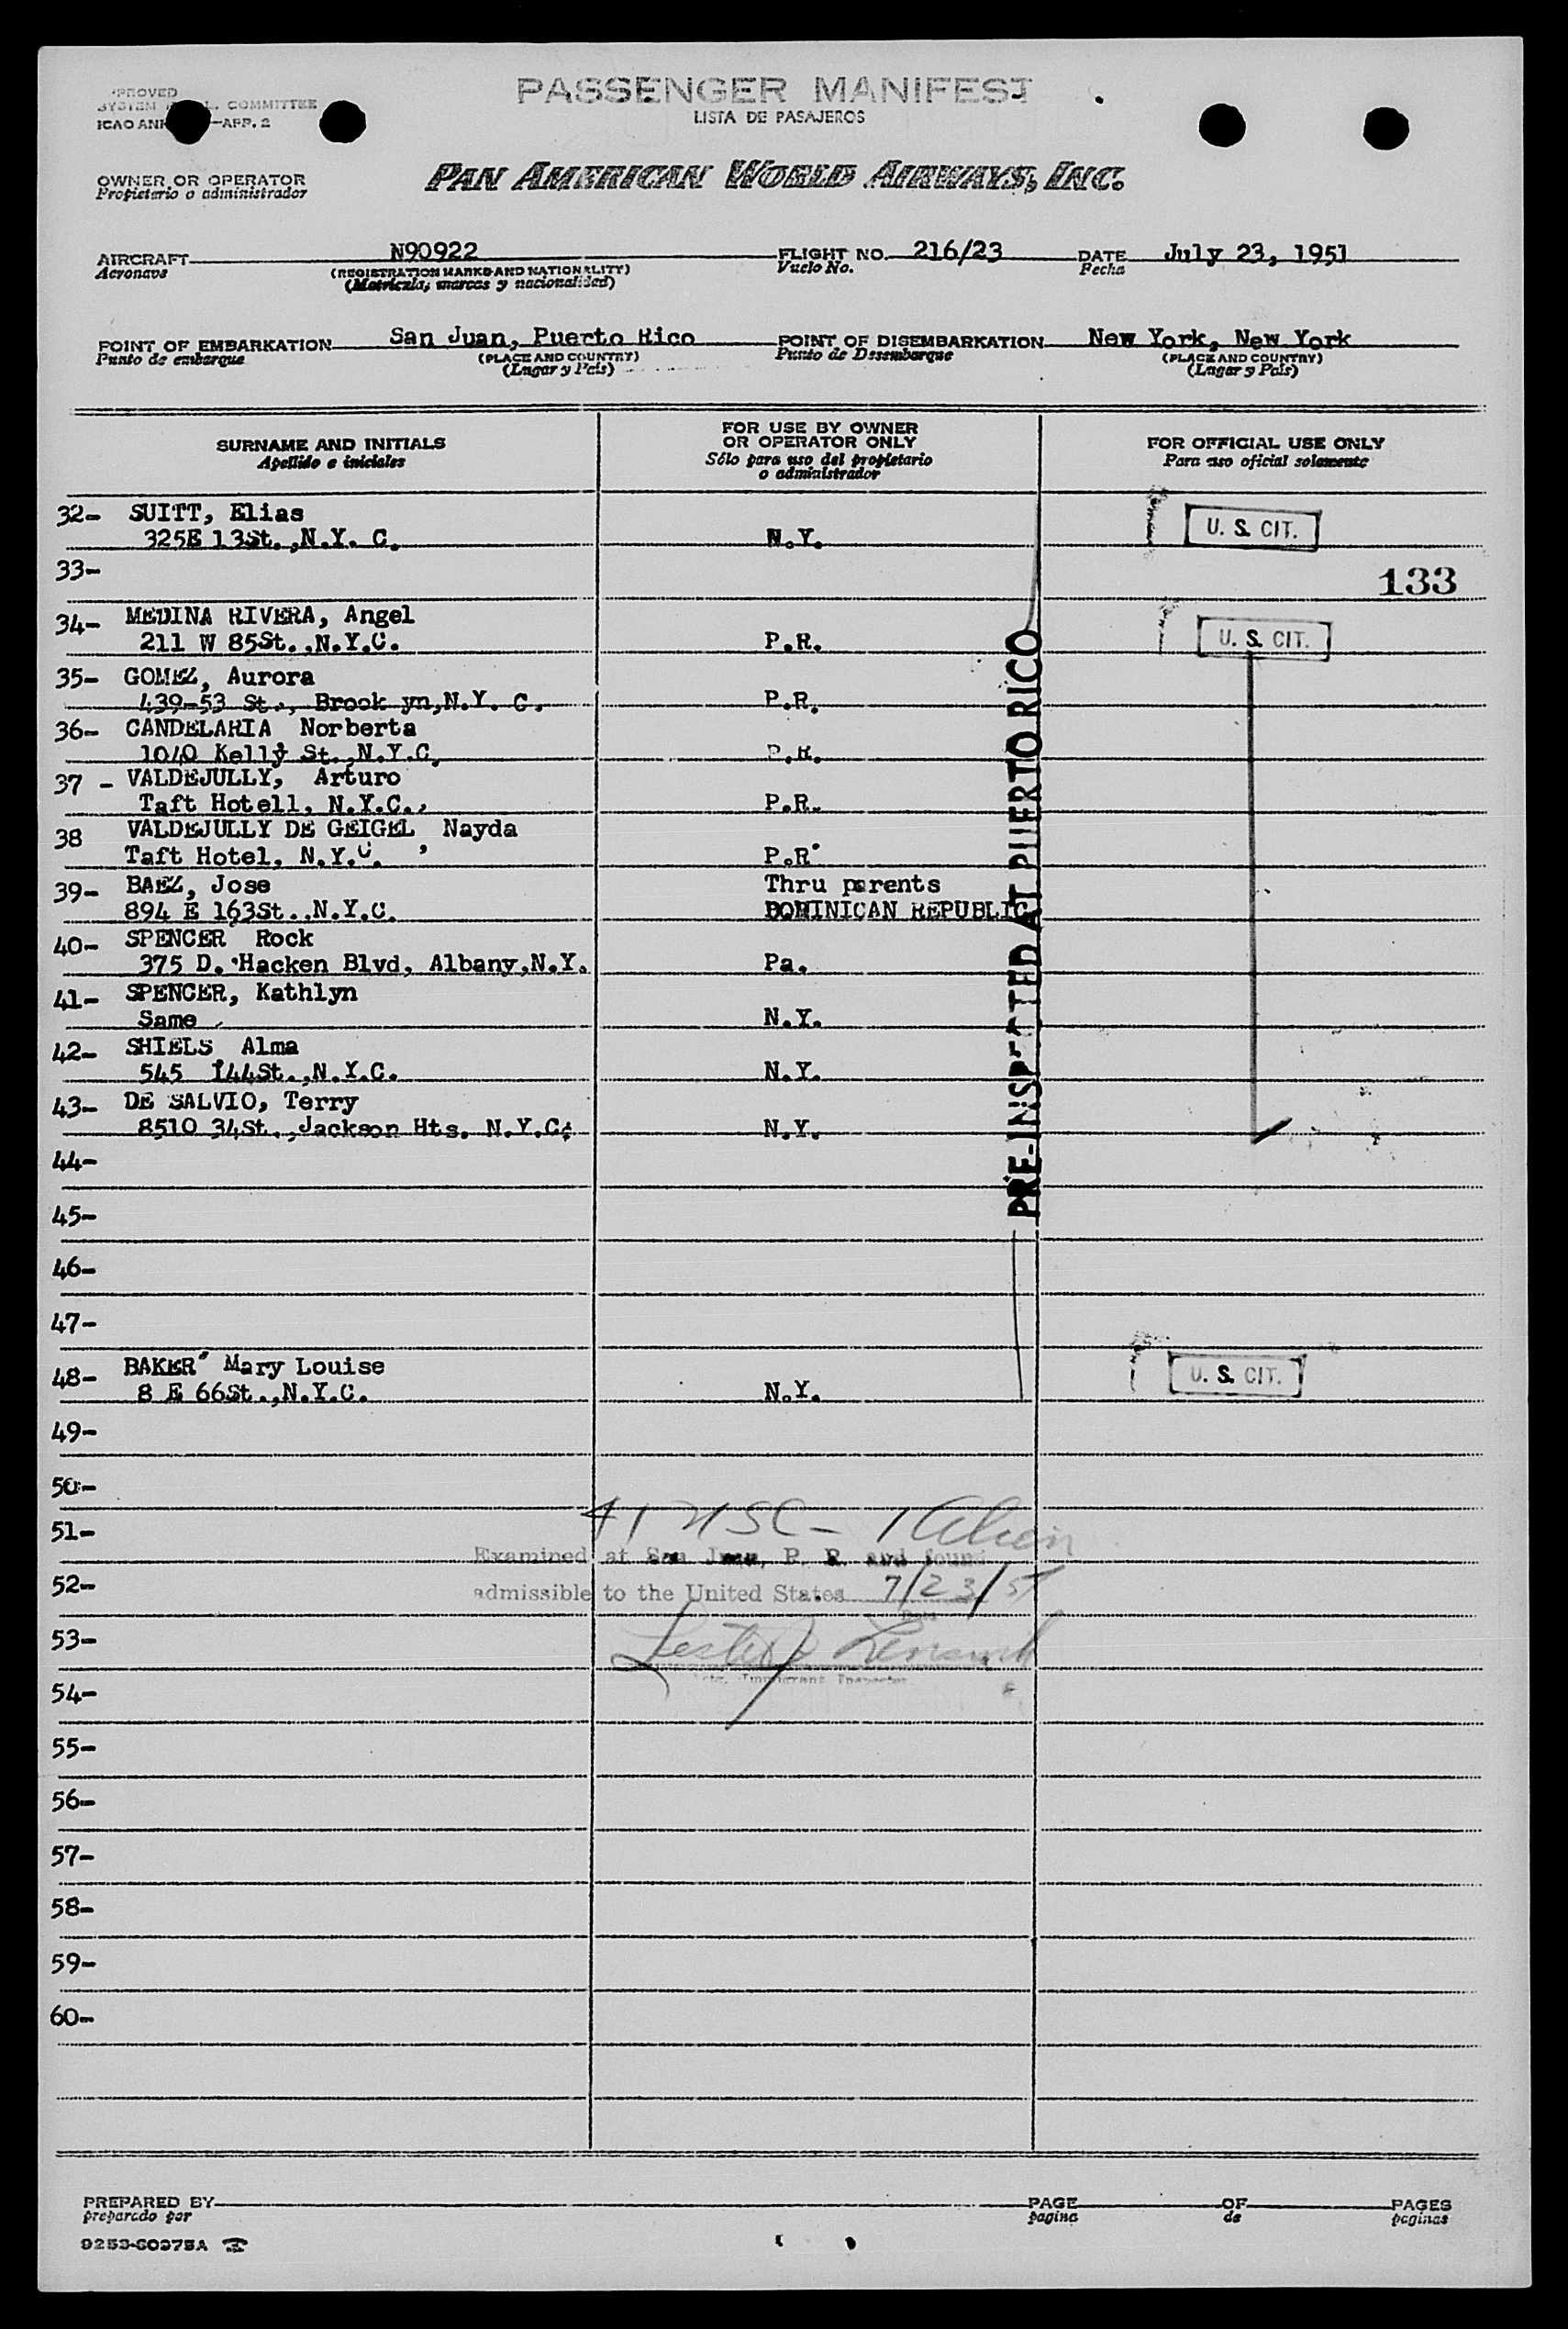 PASSENGER MANIFEST
LISTA DE PASAJEROS
COMMITTEE
APP. 2
OWNER OR OPERATOR
Propietario o administrador
PAN AMERICAN WORLD AIRWAYS, INC.
AIRCRAFT N90922 FLIGHT NO. 216/23 DATE July 23, 1951
Aeronave (REGISTRATION MARKS AND NATIONALITY) Vuelo No. Fecha
(Matricula, marcas y nacionalidad)
POINT OF EMBARKATION San Juan, Puerto Rico POINT OF DISEMBARKATION New York, New York
Punto de embarque (PLACE AND COUNTRY) Punto de Desembarque (PLACE AND COUNTRY)
(Lugar y País) (Lugar y País)
SURNAME AND INITIALS
Apellido e iniciales
FOR USE BY OWNER
OR OPERATOR ONLY
Sólo para uso del propietario
o administrador
FOR OFFICIAL USE ONLY
Para uso oficial solamente
32- SUITT, Elias
325E 13St.,N.Y. C. N.Y. U. S. CIT.
33- 133
34- MEDINA RIVERA, Angel
211 W 85St.,N.Y.C. P.R. U. S. CIT.
35- GOMEZ, Aurora
439-53 St., Brook yn,N.Y. C. P.R.
36- CANDELARIA Norberta
1040 Kelly St.,N.Y.C. P.R.
37 - VALDEJULLY, Arturo
Taft Hotell, N.Y.C., P.R.
38 VALDEJULLY DE GEIGEL Nayda
Taft Hotel, N.Y.C. , P.R
39- BAEZ, Jose Thru parents
894 E 163St.,N.Y.C. DOMINICAN REPUBLIC
40- SPENCER Rock
375 D. Hacken Blvd, Albany,N.Y. Pa.
41- SPENCER, Kathlyn
Same N.Y.
42- SHIELS Alma
545 144St.,N.Y.C. N.Y.
43- DE SALVIO, Terry
8510 34St.,Jackson Hts. N.Y.C. N.Y.
PRE-INSPECTED AT PUERTO RICO
44-
45-
46-
47-
48- BAKER Mary Louise
8 E 66St.,N.Y.C. N.Y. U. S. CIT.
49-
50-
41 USC - 1 Alien
51-
Examined at San Juan, P. R. and found
52- admissible to the United States 7/23/51
Date
53-
Immigrant Inspector
54-
55-
56-
57-
58-
59-
60-
PREPARED BY PAGE OF PAGES
preparado por pagina de paginas